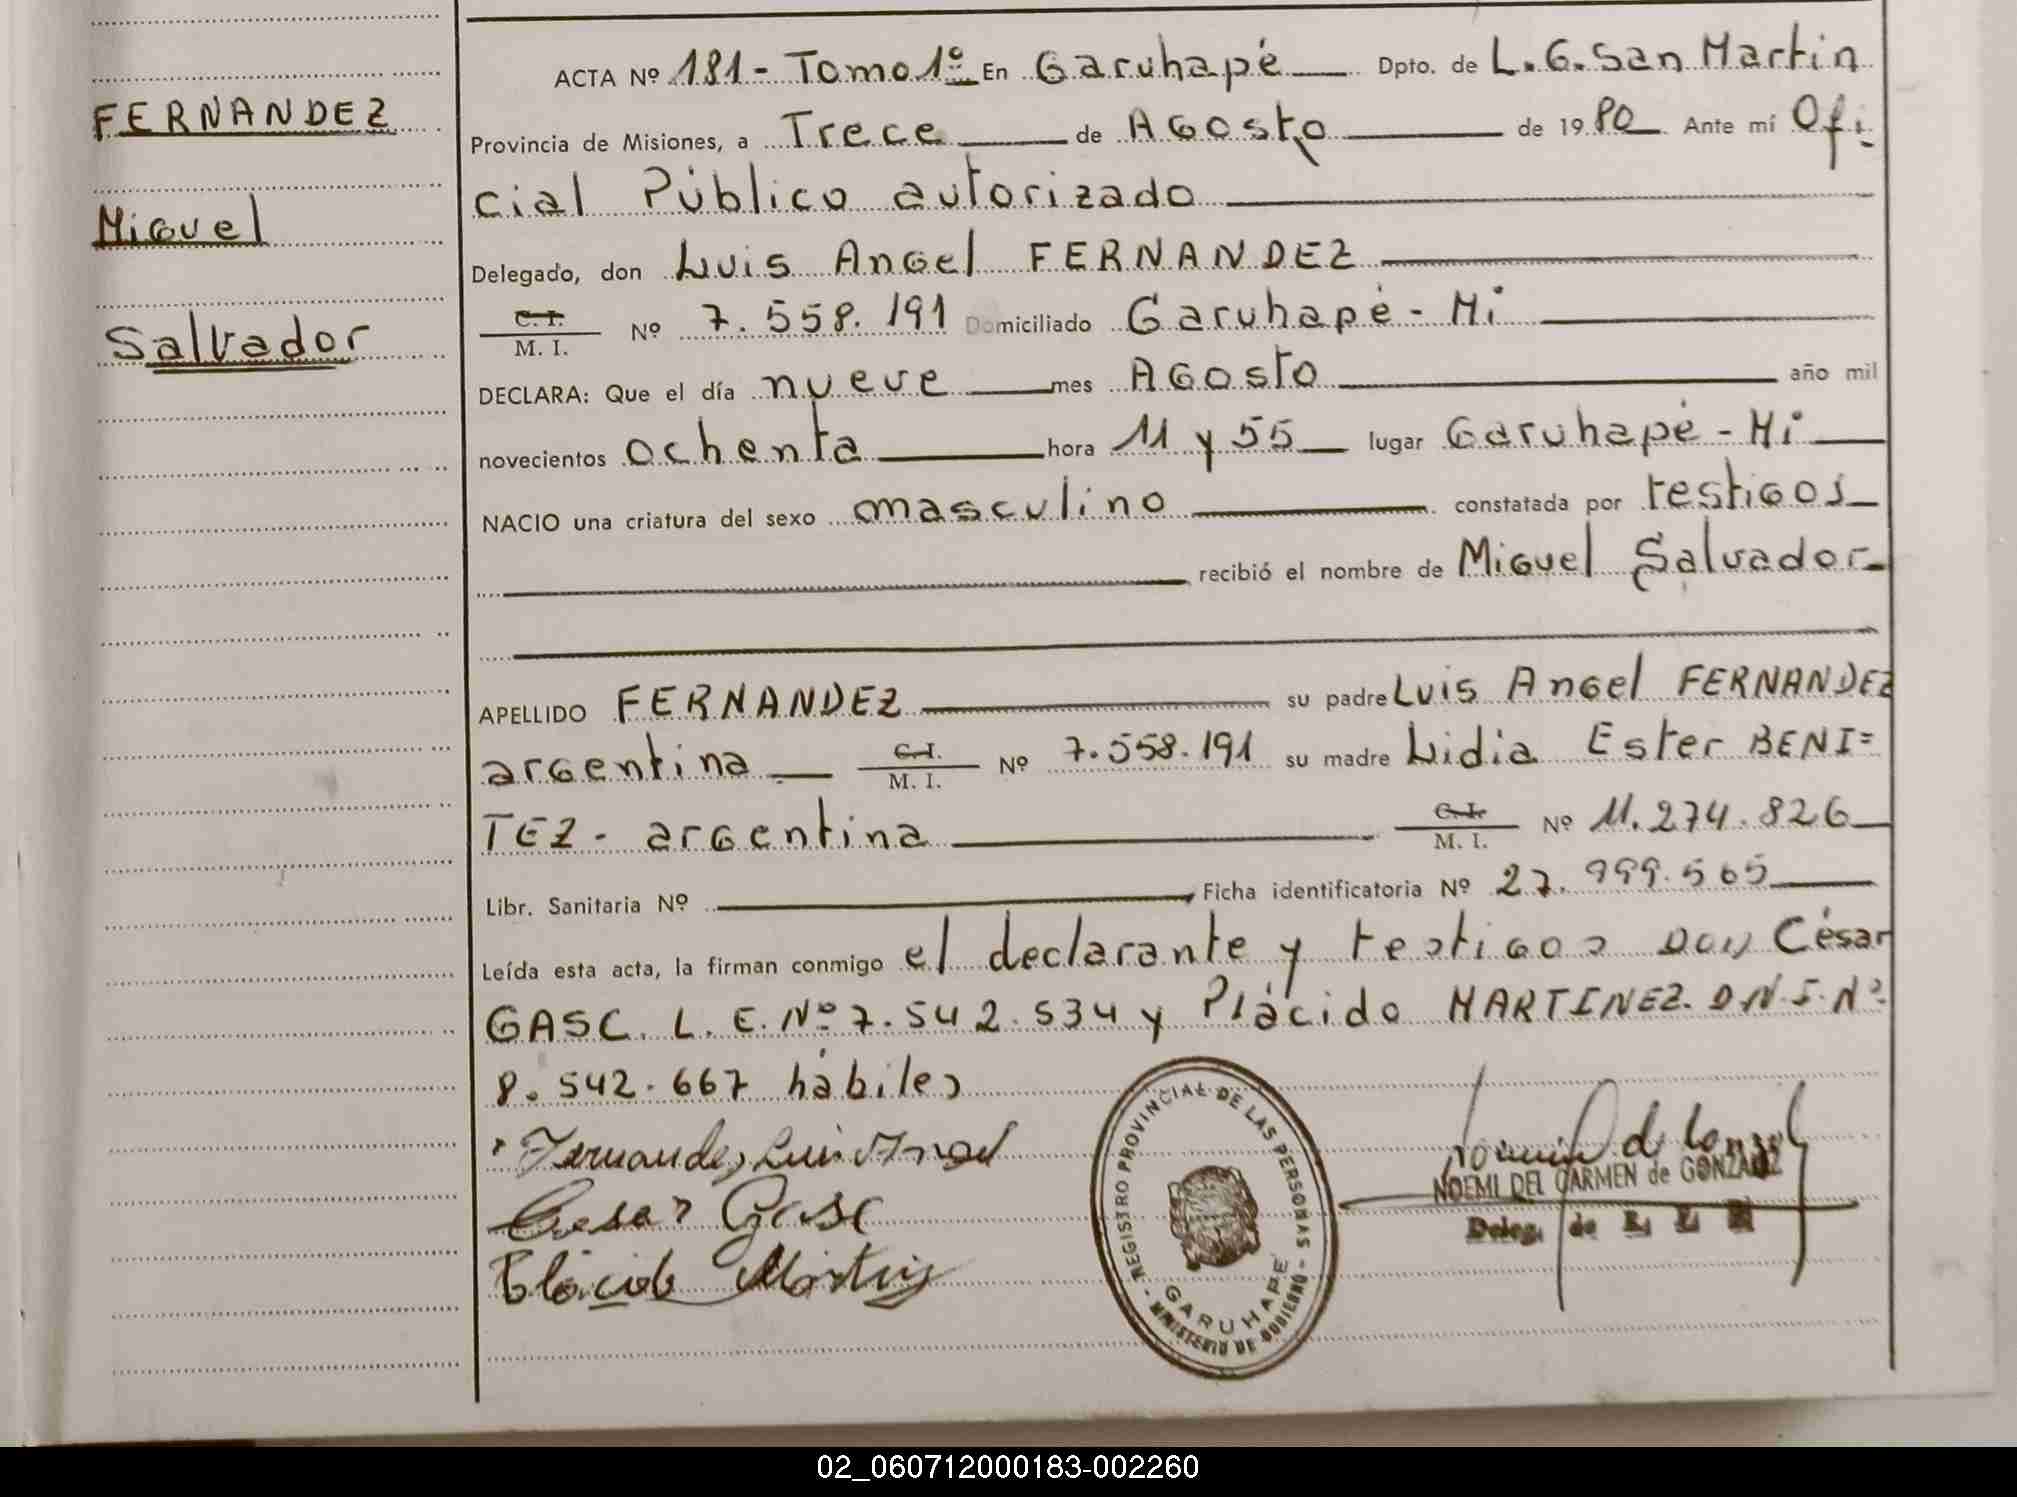 FERNANDEZ
Miguel
Salvador
ACTA Nº 181 - Tomo 1º En Garuhapé Dpto. de L. G. San Martin
Provincia de Misiones, a Trece de Agosto de 1980 Ante mí Ofi-
cial Público autorizado
Delegado, don Luis Angel FERNANDEZ
C. I. M. I. Nº 7.558.191 Domiciliado Garuhapé - Mi
DECLARA: Que el día nueve mes Agosto año mil
novecientos ochenta hora 11 y 55 lugar Garuhapé - Mi
NACIO una criatura del sexo masculino constatada por testigos
recibió el nombre de Miguel Salvador
APELLIDO FERNANDEZ su padre Luis Angel FERNANDEZ
argentina C. I. M. I. Nº 7.558.191 su madre Lidia Ester BENI=
TEZ - argentina C. I. M. I. Nº 11.274.826
Libr. Sanitaria Nº Ficha identificatoria Nº 27.999.565
Leída esta acta, la firman conmigo el declarante y testigos Don César
GASC. L. E. Nº 7.542.534 y Plácido MARTINEZ. D.N.I. Nº
8.542.667 hábiles
Fernandez Luis Angel
Cesar Gasc
Plácido Martinez
REGISTRO PROVINCIAL DE LAS PERSONAS
GARUHAPE
- MINISTERIO DE GOBIERNO -
NOEMI DEL CARMEN de GONZALEZ
Deleg. de
02_060712000183-002260